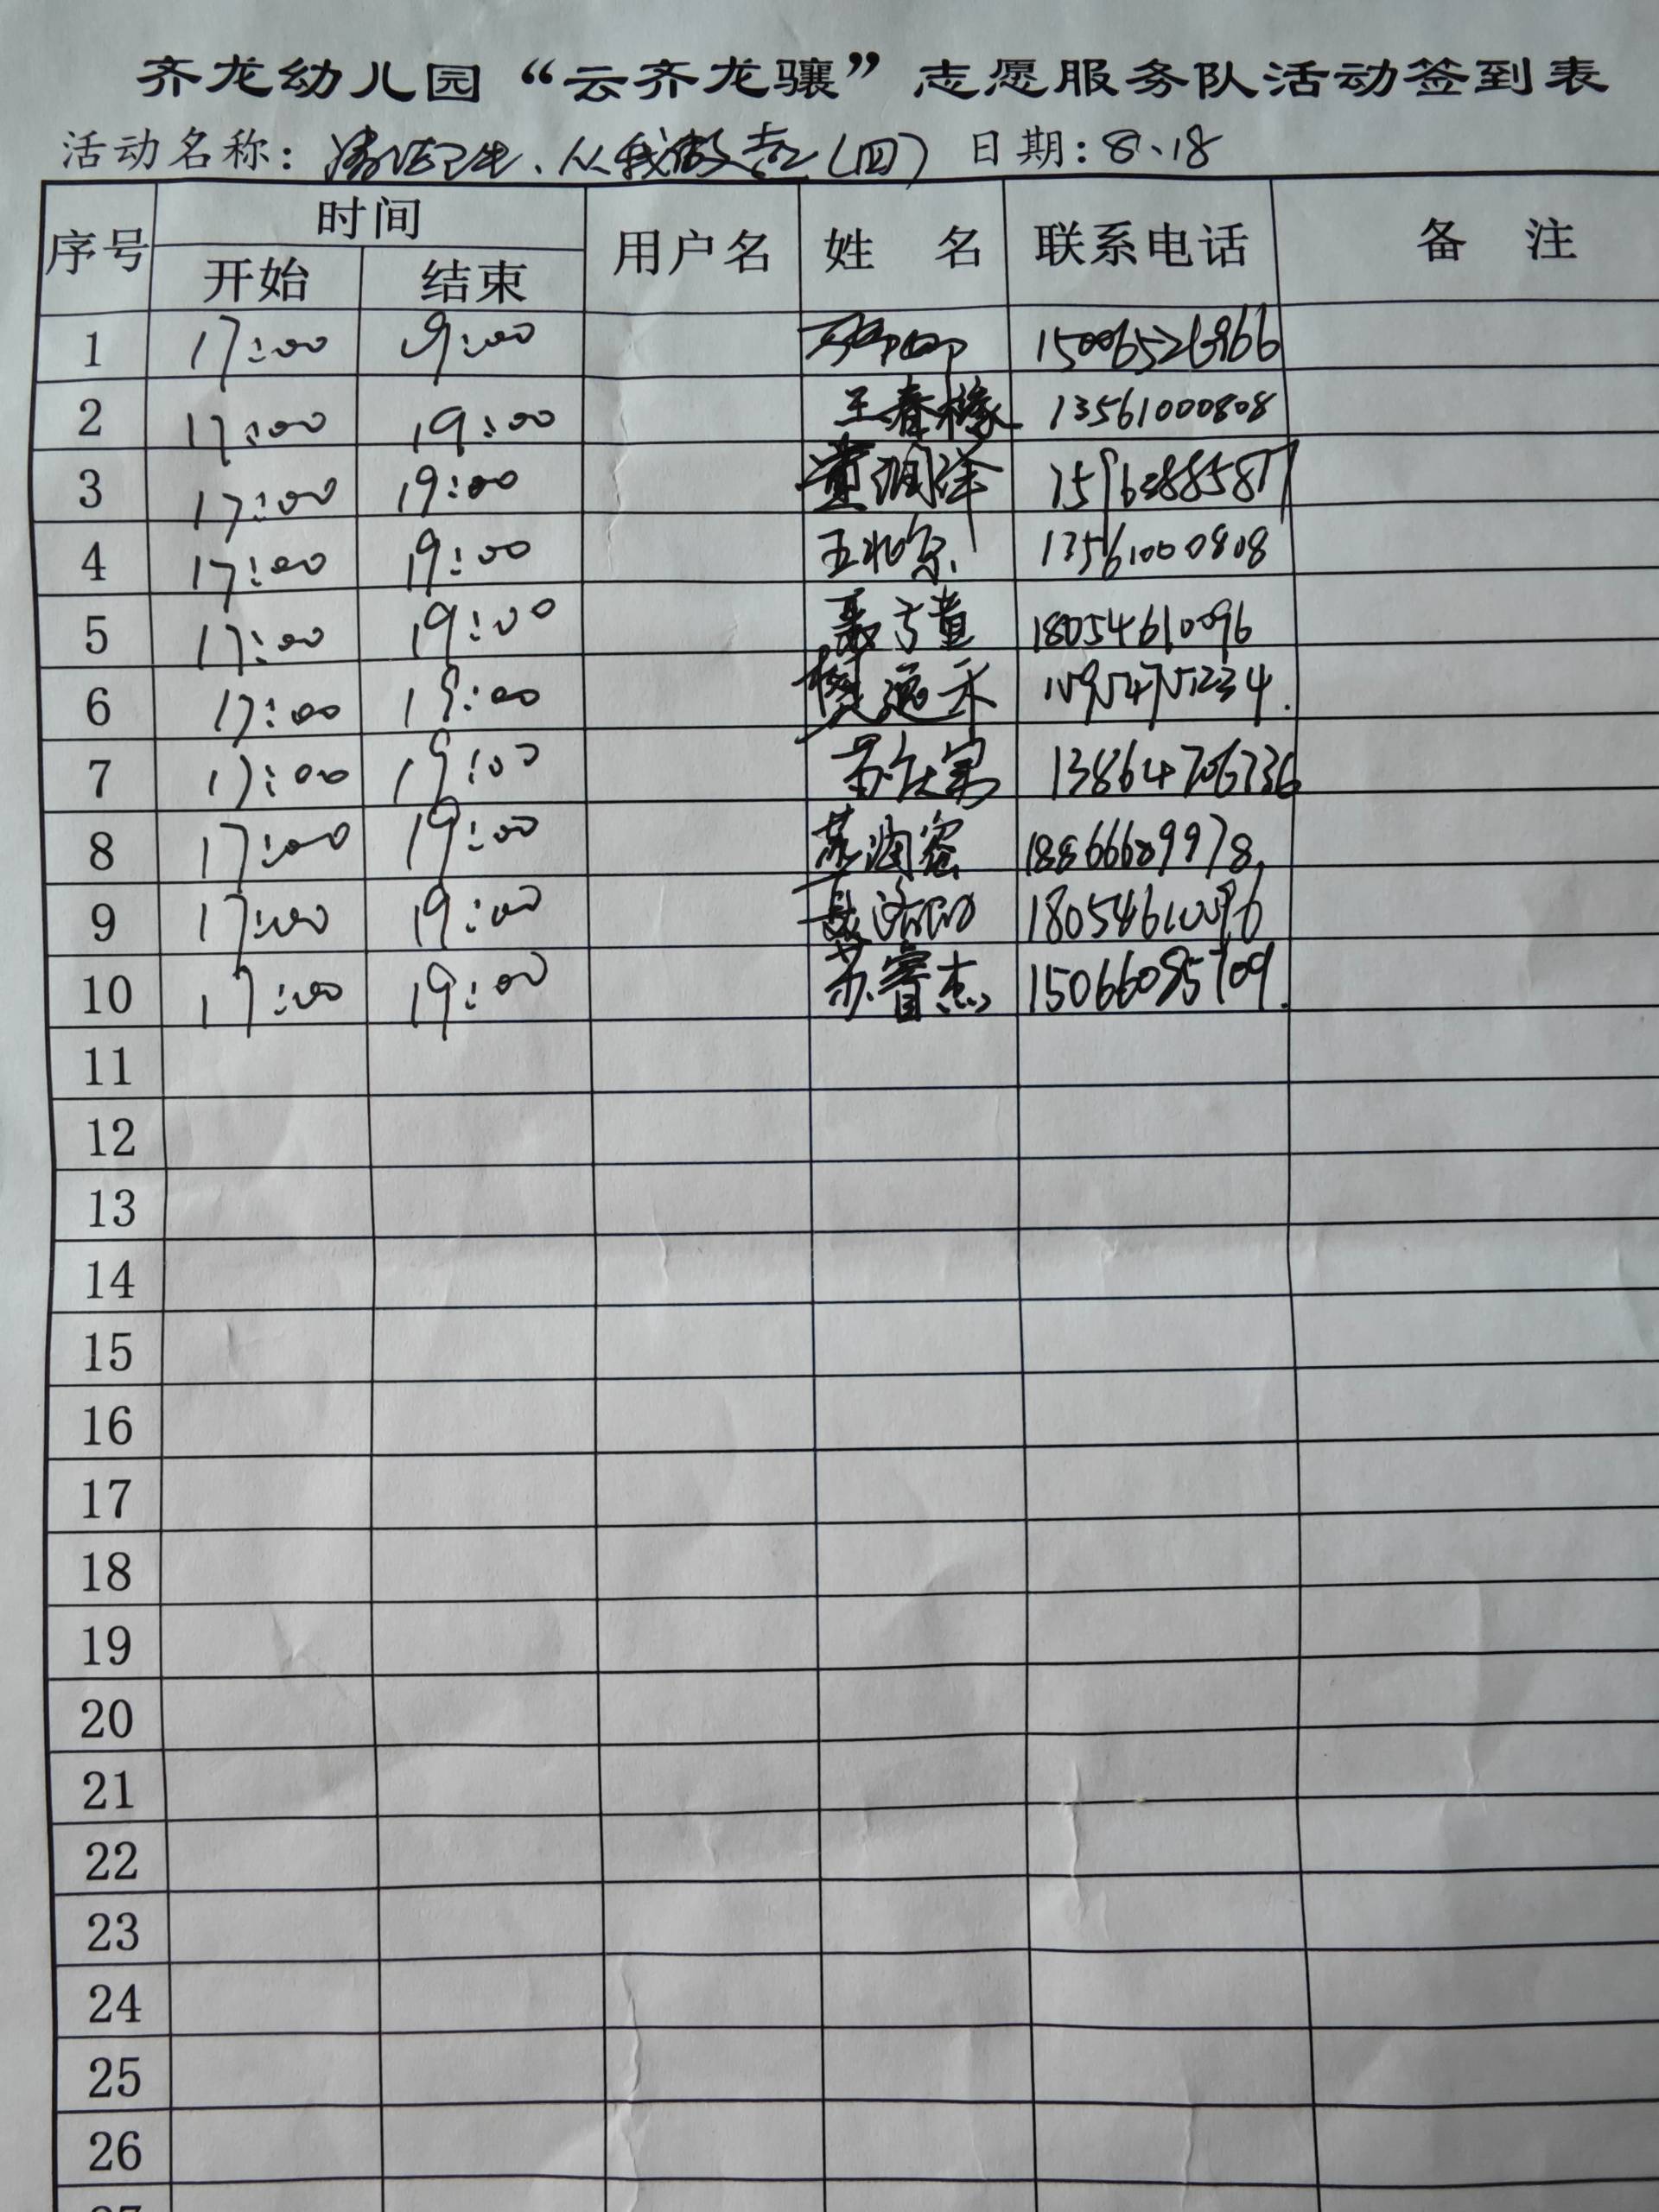 齐龙幼儿园“云齐龙骧”志愿服务队活动签到表
活动名称：清洁卫生、从我做起（四） 日期：8、18
序号 时间 用户名 姓 名 联系电话 备 注
开始 结束
1 17:00 9:00
2 17:00 19:00 王春橡 13561000808
3 17:00 19:00 董润泽
4 17:00 19:00 王北京 13561000808
5 17:00 19:00 18054610096
6 17:00 19:00 逸禾
7 17:00 19:00 13864706736
8 17:00 19:00 苏润容 18866609978
9 17:00 19:00 18054610096
10 17:00 19:00 苏睿杰 15066085709
11
12
13
14
15
16
17
18
19
20
21
22
23
24
25
26
27